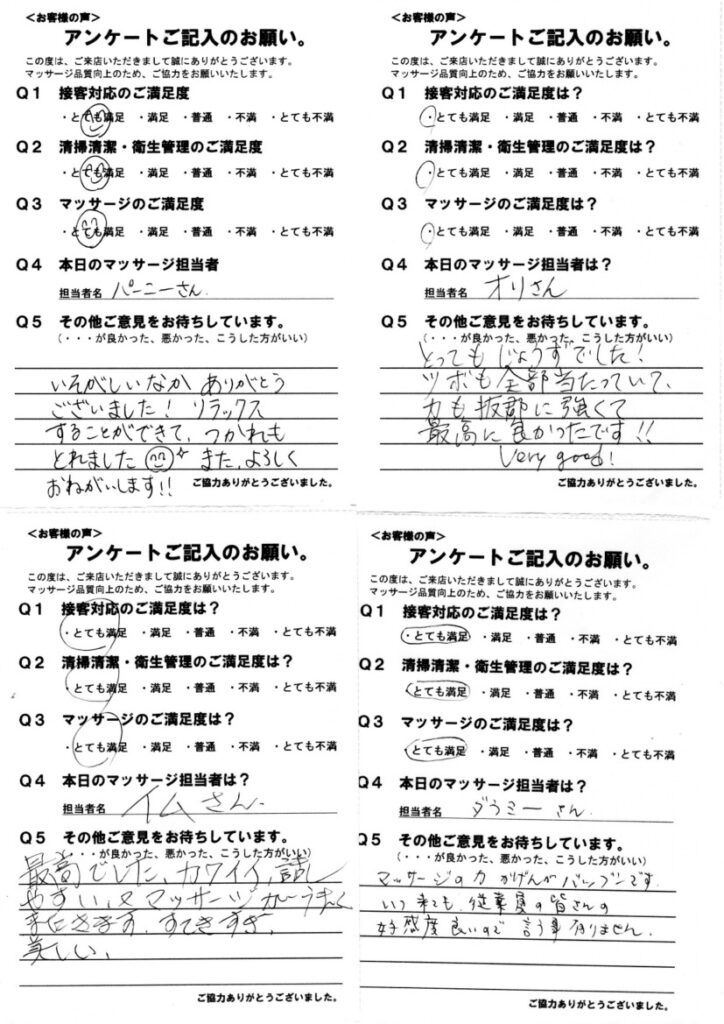 ＜お客様の声＞
アンケートご記入のお願い。
この度は、ご来店いただきまして誠にありがとうございます。
マッサージ品質向上のため、ご協力をお願いいたします。
Q1 接客対応のご満足度
・とても満足 ・満足 ・普通 ・不満 ・とても不満
Q2 清掃清潔・衛生管理のご満足度
・とても満足 ・満足 ・普通 ・不満 ・とても不満
Q3 マッサージのご満足度
・とても満足 ・満足 ・普通 ・不満 ・とても不満
Q4 本日のマッサージ担当者
担当者名 パーニーさん.
Q5 その他ご意見をお待ちしています。
（・・・が良かった、悪かった、こうした方がいい）
いそがしいなか ありがとう
ございました! リラックス
することができて、つかれも
とれました また、よろしく
おねがいします!!
ご協力ありがとうございました。
＜お客様の声＞
アンケートご記入のお願い。
この度は、ご来店いただきまして誠にありがとうございます。
マッサージ品質向上のため、ご協力をお願いいたします。
Q1 接客対応のご満足度は？
・とても満足 ・満足 ・普通 ・不満 ・とても不満
Q2 清掃清潔・衛生管理のご満足度は？
・とても満足 ・満足 ・普通 ・不満 ・とても不満
Q3 マッサージのご満足度は？
・とても満足 ・満足 ・普通 ・不満 ・とても不満
Q4 本日のマッサージ担当者は？
担当者名 オリさん
Q5 その他ご意見をお待ちしています。
（・・・が良かった、悪かった、こうした方がいい）
とってもじょうずでした!
ツボも全部当たっていて、
力も抜郡に強くて
最高に良かったです!!
Very good!
ご協力ありがとうございました。
＜お客様の声＞
アンケートご記入のお願い。
この度は、ご来店いただきまして誠にありがとうございます。
マッサージ品質向上のため、ご協力をお願いいたします。
Q1 接客対応のご満足度は？
・とても満足 ・満足 ・普通 ・不満 ・とても不満
Q2 清掃清潔・衛生管理のご満足度は？
・とても満足 ・満足 ・普通 ・不満 ・とても不満
Q3 マッサージのご満足度は？
・とても満足 ・満足 ・普通 ・不満 ・とても不満
Q4 本日のマッサージ担当者は？
担当者名 イムさん.
Q5 その他ご意見をお待ちしています。
（・・・が良かった、悪かった、こうした方がいい）
最高でした、カワイイ、話し
やすい、マッサージがうまく
またきます、すてきすぎ、
美しい、
ご協力ありがとうございました。
＜お客様の声＞
アンケートご記入のお願い。
この度は、ご来店いただきまして誠にありがとうございます。
マッサージ品質向上のため、ご協力をお願いいたします。
Q1 接客対応のご満足度は？
・とても満足 ・満足 ・普通 ・不満 ・とても不満
Q2 清掃清潔・衛生管理のご満足度は？
・とても満足 ・満足 ・普通 ・不満 ・とても不満
Q3 マッサージのご満足度は？
・とても満足 ・満足 ・普通 ・不満 ・とても不満
Q4 本日のマッサージ担当者は？
担当者名 ダウミー さん.
Q5 その他ご意見をお待ちしています。
（・・・が良かった、悪かった、こうした方がいい）
マッサージの力かげんがバツグンです.
いつ来ても、従業員の皆さんの
好感度良いので 言う事有りません.
ご協力ありがとうございました。